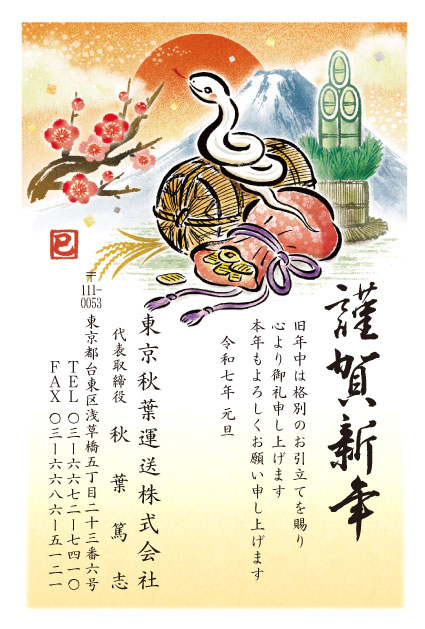 謹賀新年
旧年中は格別のお引立てを賜り
心より御礼申し上げます
本年もよろしくお願い申し上げます
令和七年 元旦
東京秋葉運送株式会社
代表取締役 秋葉篤志
〒111-0053
東京都台東区浅草橋五丁目二十三番六号
TEL 〇三-六六七二-七四一〇
FAX 〇三-六六八六-五一二一
巳